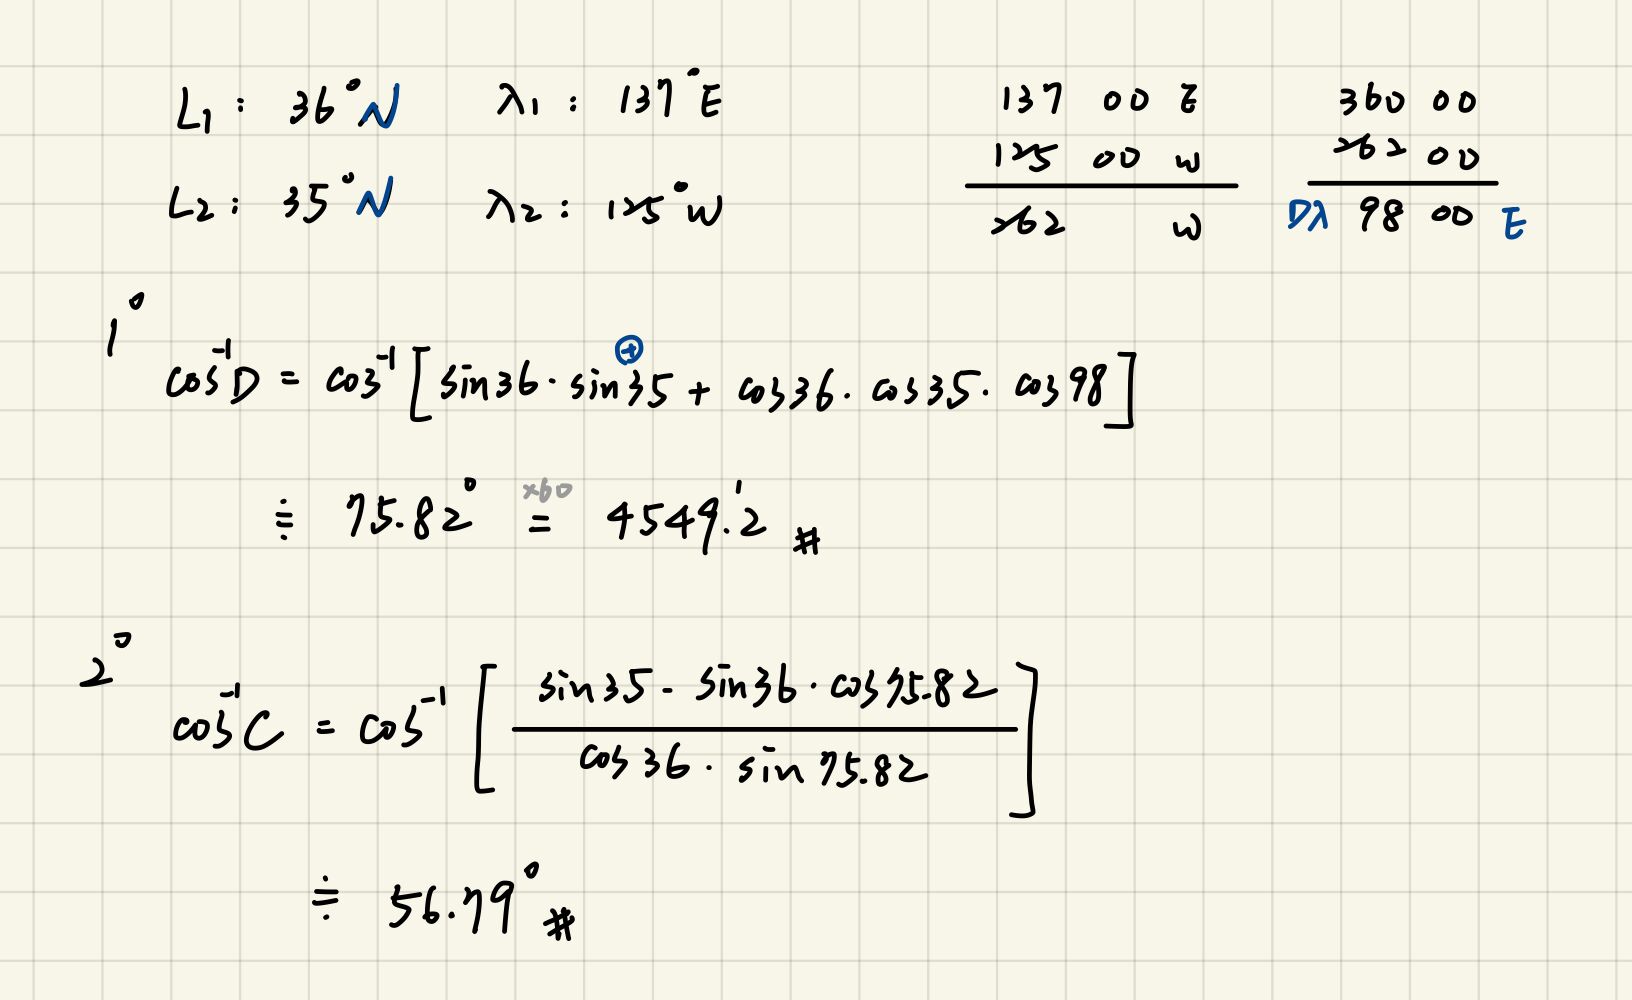 L₁ : 36°N λ₁ : 137°E
L₂ : 35°N λ₂ : 125°W
137 00 E
125 00 W
262 W
360 00
262 00
Dλ 98 00 E
1°
cos⁻¹D = cos⁻¹[sin36·sin35 + cos36·cos35·cos98]
⊕
≑ 75.82° ×60 = 4549.'2 #
2°
cos⁻¹C = cos⁻¹[
sin35 - sin36·cos75.82
cos36·sin75.82
]
≑ 56.79° #